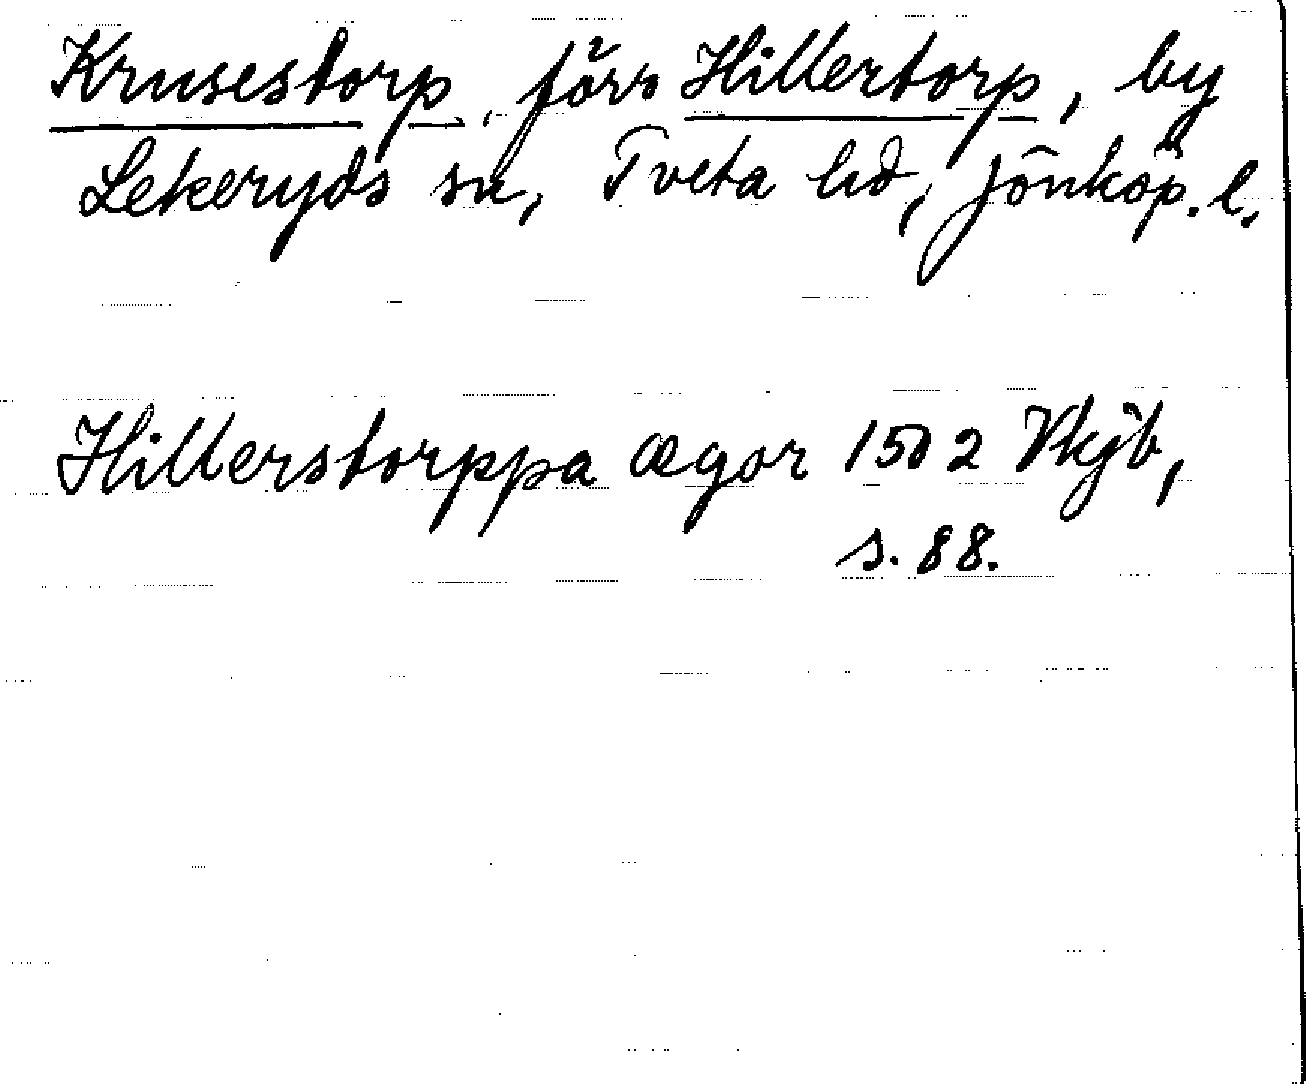 Krusestorp, förr Hillertorp, by
Lekeryds sn, Tveta hd, Jönköp. l.
Hillerstorppa ægor 1502 Vkjb,
s. 88.